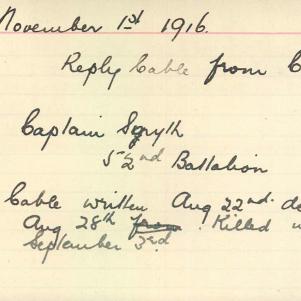 November 1st 1916.
Reply Cable from C
Captain Smyth
52nd Battalion
Cable written Aug 22nd. de
Aug 28th from. Killed
September 3rd